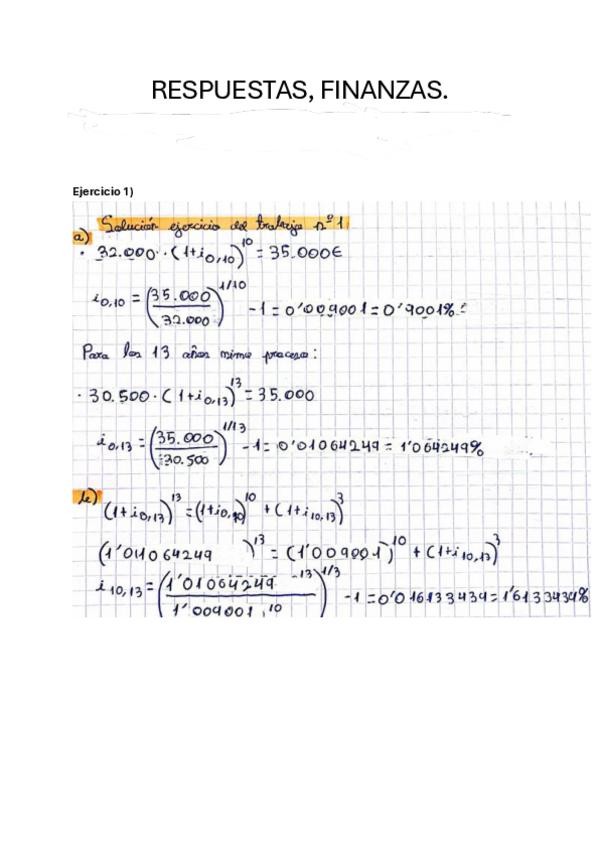 RESPUESTAS, FINANZAS.
Ejercicio 1)
Solución ejercicio del trabajo nº1
a)
· 32.000·(1+i0,10)^10 = 35.000€
i0,10 = (35.000/32.000)^1/10 -1 = 0'009001 = 0'9001%
Para los 13 años mimo proceso:
· 30.500·(1+i0,13)^13 = 35.000
i0,13 = (35.000/30.500)^1/13 -1 = 0'01064249 = 1'064249%
b)
(1+i0,13)^13 = (1+i0,10)^10 + (1+i10,13)^3
(1'01064249)^13 = (1'009001)^10 + (1+i10,13)^3
i10,13 = (1'01064249^13/1'009001^10)^1/3 -1 = 0'016133434 = 1'6133434%